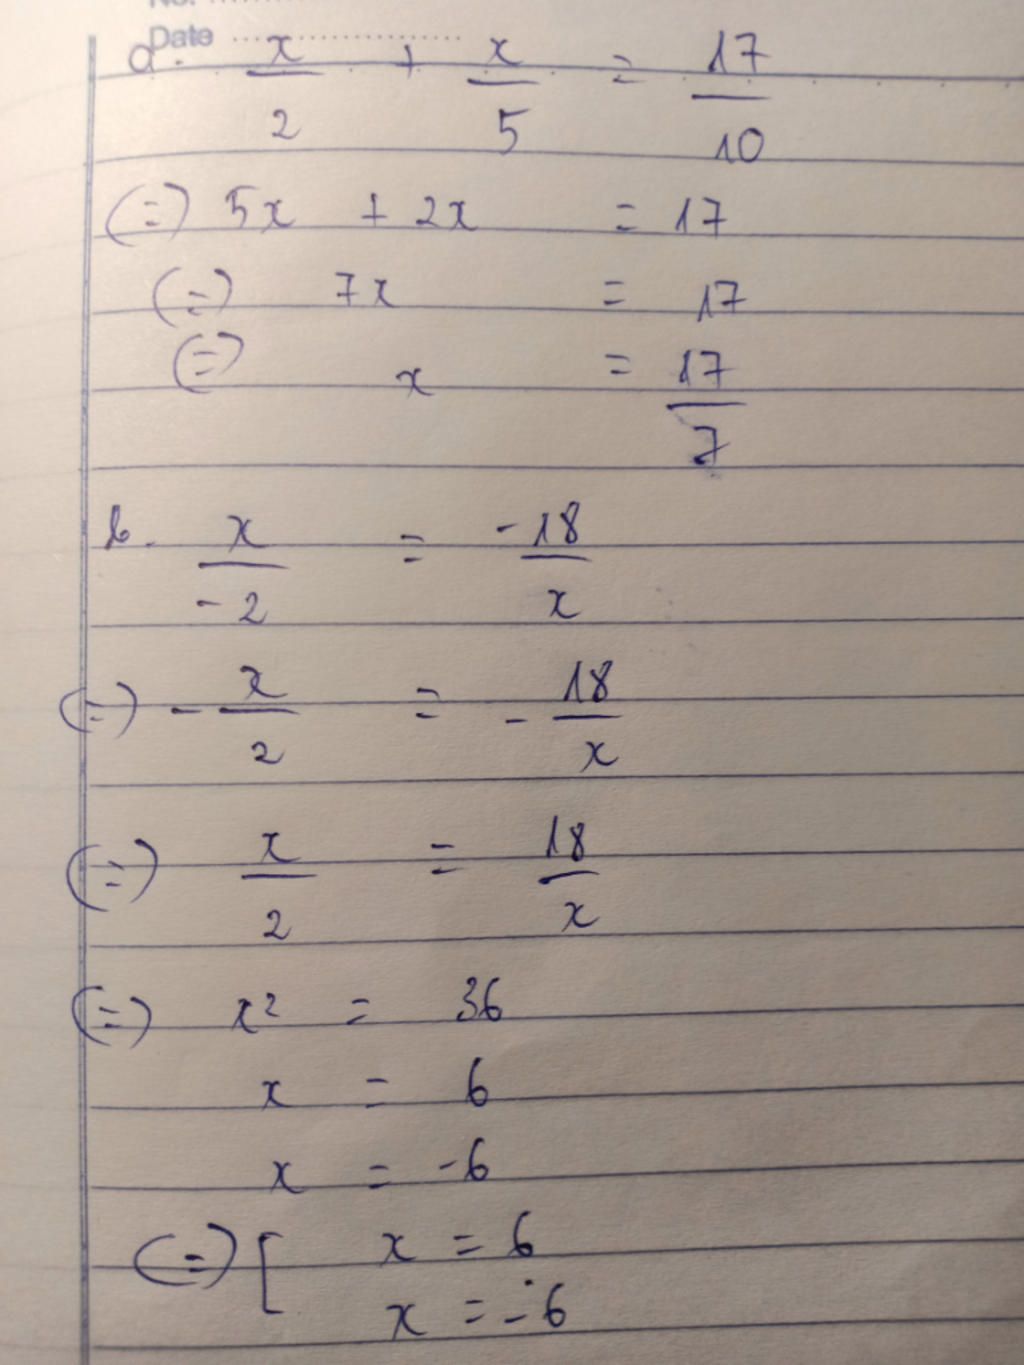 No. ..........
Date ....................
a. x/2 + x/5 = 17/10
(=) 5x + 2x = 17
(=) 7x = 17
(=) x = 17/7
b. x/-2 = -18/x
(=) - x/2 = - 18/x
(=) x/2 = 18/x
(=) x² = 36
x = 6
x = -6
(=) [ x = 6
x = -6